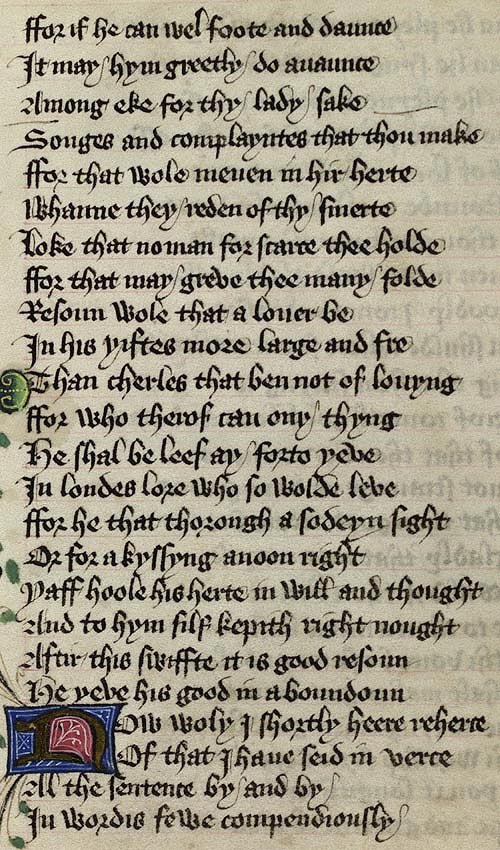 ffor if he can wel foote and daunce
It may hym greetly do auaunce
Among eke for thy lady sake
Songes and complayntes that thou make
ffor that wole meuen in hir herte
Whanne they reden of thy smerte
Loke that no man for scarce thee holde
ffor that may greve thee many folde
Resoun wole that a louer be
In his yiftes more large and fre
Than cherles that ben not of louyng
ffor who therof can ony thyng
He shal be leef ay forto yeve
In londes lore who so wolde leve
ffor he that thorough a sodeyn sight
Or for a kyssyng anoon right
Yaff hoole his herte in will and thought
And to hym silf kepith right nought
Aftir this swiffte it is good resoun
He yeve his good in aboundoun
Now woly I shortly heere reherce
Of that I haue seid in verce
All the sentence by and by
In wordis fewe compendiously